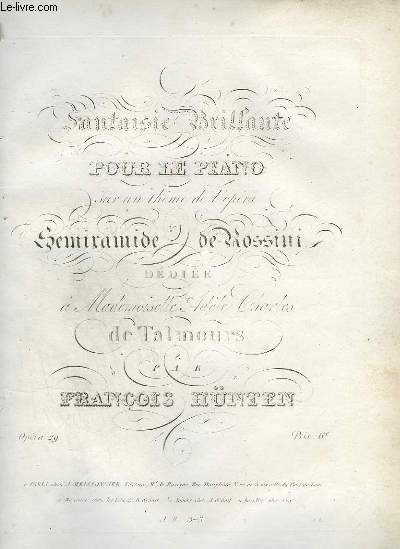 Fantaisie Brillante
POUR LE PIANO
Sur un thème de l'opéra
Semiramide de Rossini
DÉDIÉE
à Mademoiselle Adèle Charles
de Talmours
PAR
FRANÇOIS HÜNTEN
Opéra 29 Prix 6f
à PARIS, chez J. MEISSONNIER
LIVRE-RARE-BOOK.com